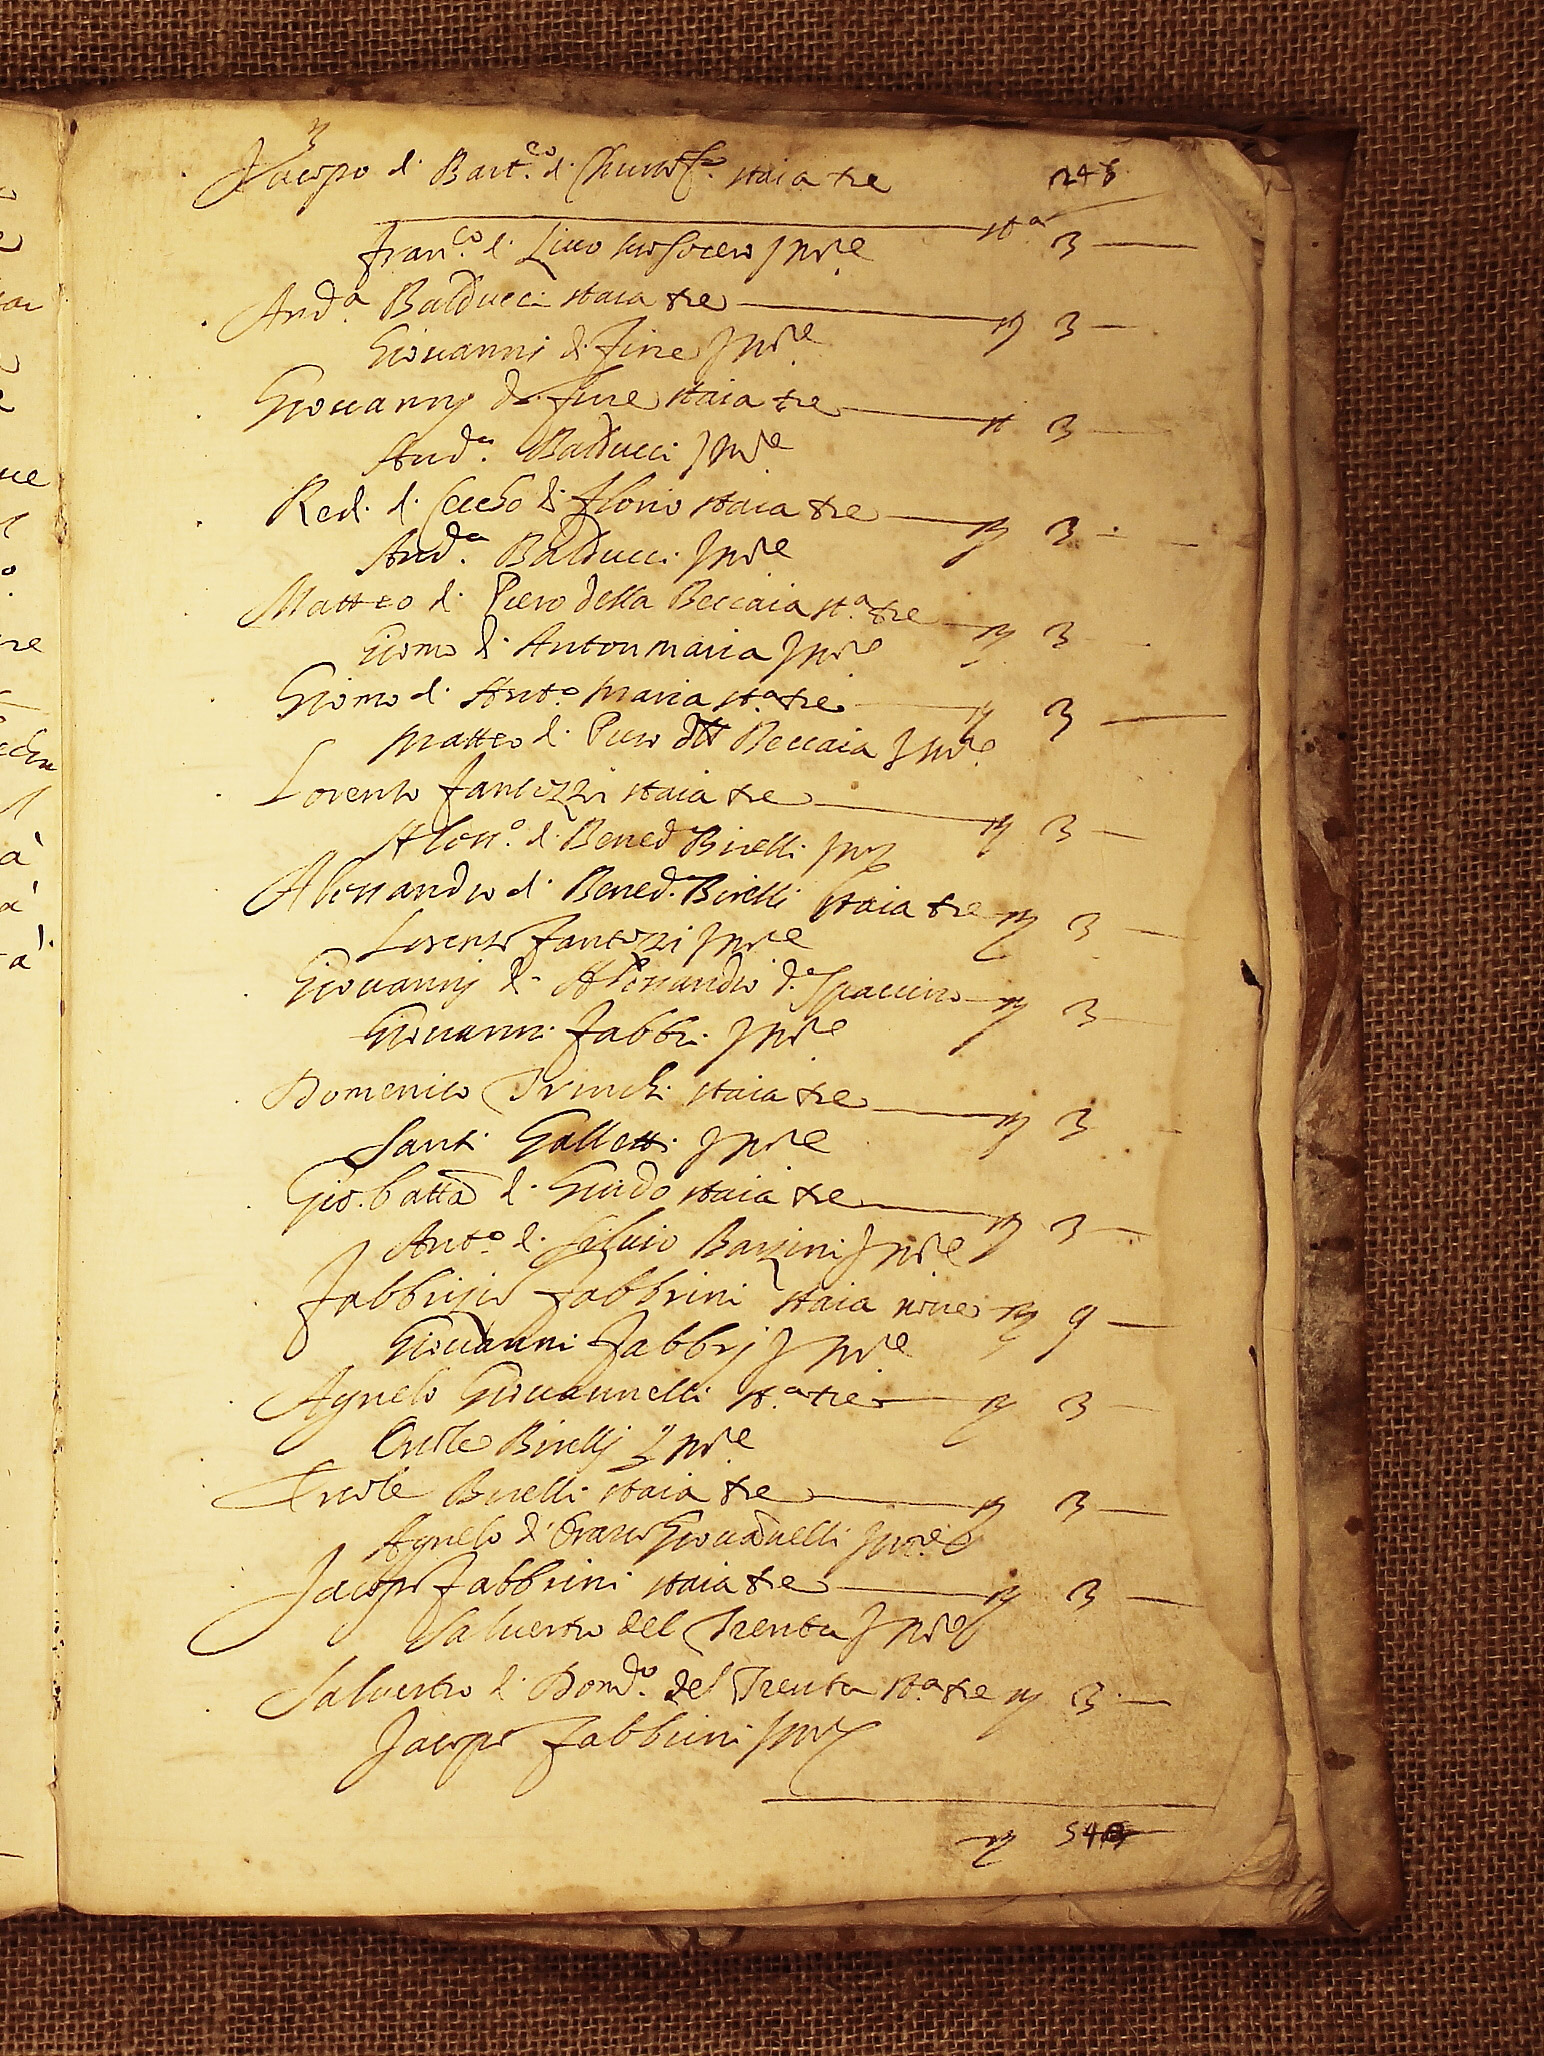 Jacopo d. Bart.eo d. staia tre 248
st.a 3
Fran.co d. Livo suo socero p.re
And.a Balducci staia tre 3
Giovanni di Fine p.re
Giovannj di Fine staia tre st 3
And.a Balducci p.re
Red. d. Ceccho di Florio staia tre 3
And.a Balducci p.re
Matteo d. Piero della Beccaia st.a tre 3
Giomo di Antonmaria p.re
Giomo d. Ant.o maria st.a tre 3
Matteo d. Piero Beccaia p.re
Lorenzo Fantozzi staia tre 3
Aless.o d. Bened Birelli
Alessandro d. Bened. Birelli staia tre 3
Lorenzo Fantozzi p.re
Giovannj d. Alessandro d. 3
Giovanni Fabbri p.re
Domenico Trinch staia tre 3
Santi Galletti p.re
Gio. batta d. Guido staia tre 3
Ant.o d. Silvio Barzini p.re
Fabbrizio Fabbrini staia nove 9
Giovanni Fabbrj p.re
Agnelo Giovannelli st.a tre 3
Ercole Birellj p.re
Ercole Birelli staia tre 3
Agnelo d. Giovanelli p.re
Jacopo Fabbrini staia tre 3
Salvestro del Trenta p.re
Salvestro d. Dom.o del Trenta st.a tre 3
Jacopo Fabbrini
54